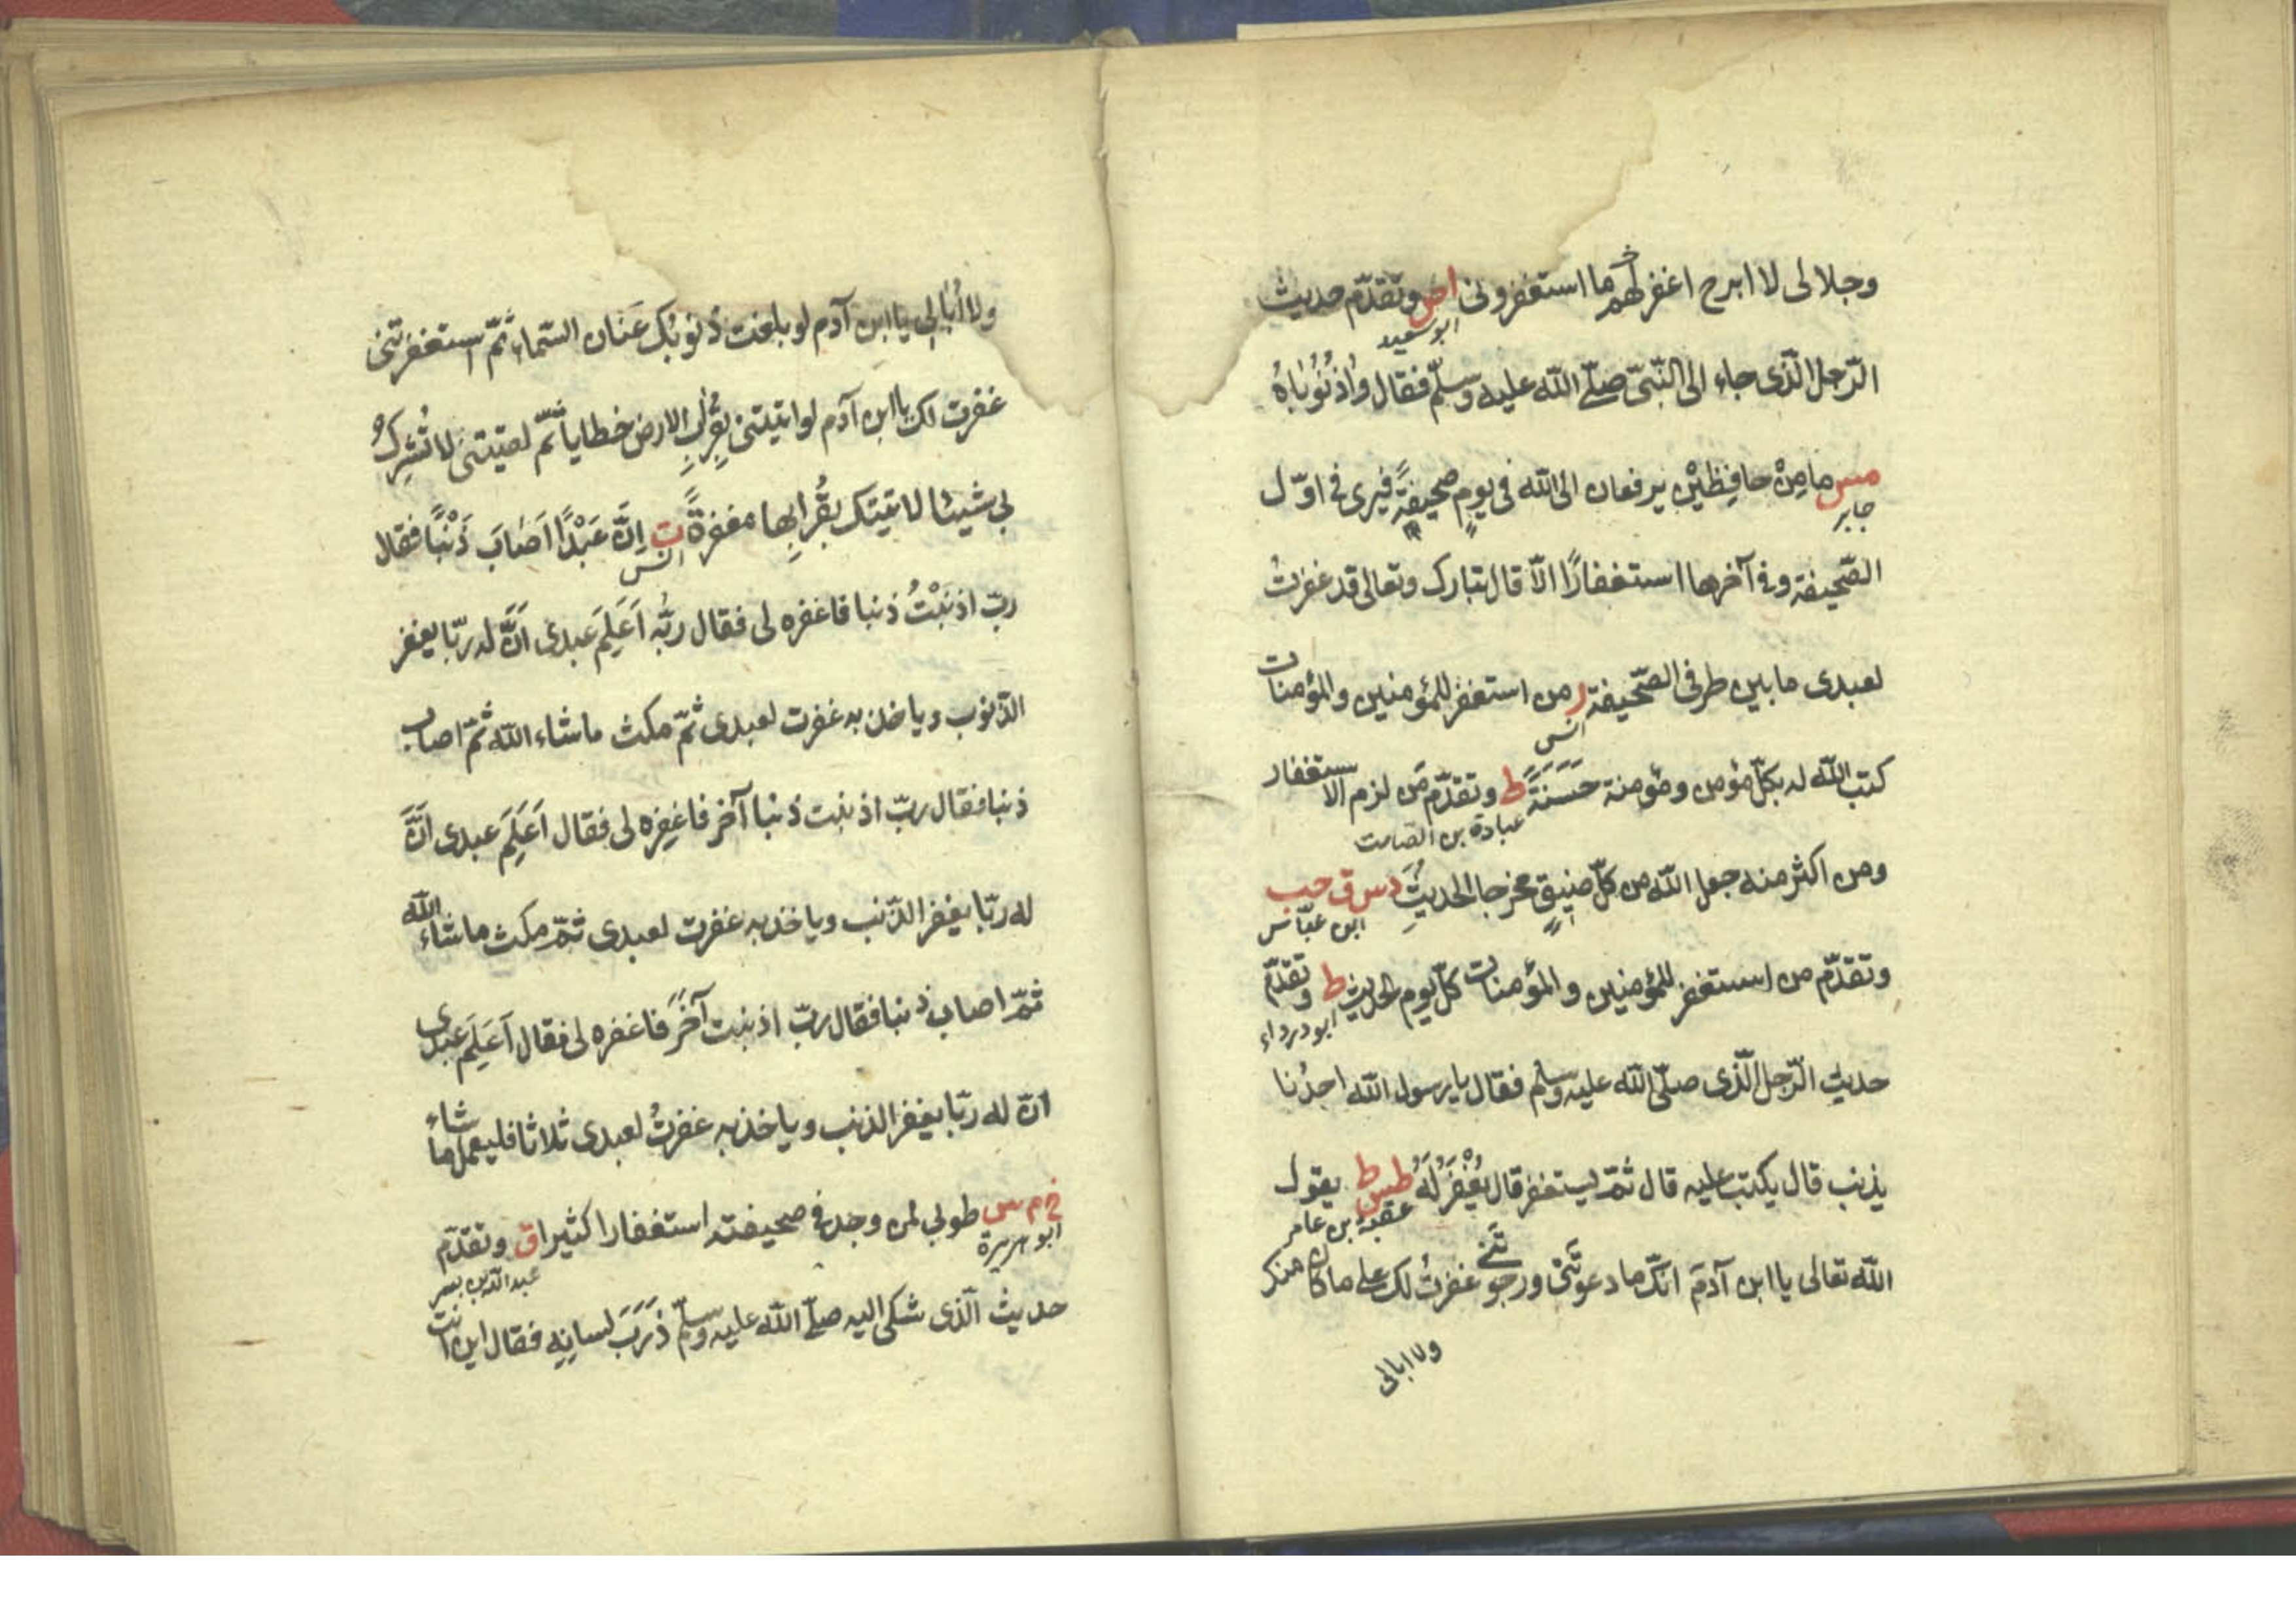 وجلالى لا ابرح اغفر لهم ما استغفرونى اص وتقدّم حديث
ابو سعيد
الرّجل الّذى جاء الى النّبىّ صلّى الله عليه وسلّم فقال واذنُوباهُ
مس ما مِنْ حافِظَيْنِ يرفعان الى الله فى يومٍ صحيفةً فيرى فى اوّل
جابر
الصّحيفة وفى آخرها استغفارًا الّا قال تبارك وتعالى قد غفرتُ
لعبدى ما بين طرفى الصّحيفة ر من استغفر للمؤمنين والمؤمنات
انس
كتب الله له بكلّ مؤمن ومؤمنة حَسَنَةً ط وتقدّم من لزم الاستغفار
عبادة بن الصامت
ومن اكثر منه جعل الله من كلّ ضيقٍ مخرجا الحديثَ د س ق حب
ابن عبّاس
وتقدّم من استغفر للمؤمنين والمؤمنات كلّ يوم الحديث ط وتقدّم
ابو درداء
حديث الرّجل الّذى صلّى الله عليه وسلم فقال يا رسول الله احدُنا
يذنب قال يكتب عليه قال ثمّ يستغفر قال يُغْفَرُ لَهُ طس ط يقول
عقبة بن عامر
الله تعالى يا ابن آدمَ انّك ما دعوتَنى ورجوتنى غفرتُ لك على ما كان منك
ولا ابالى
ولا اُبالى يا ابن آدم لو بلغت ذنوبك عَنان السّماء ثمّ استغفرتنى
غفرت لك يا ابن آدم لو اتيتنى بقُرابِ الارض خطايا ثمّ لقيتنى لا تُشْرِكُ
بى شيئا لاتيتك بقُرابِها مغفرةً ت اِنّ عَبْدًا اَصَابَ ذَنْبًا فقال
انس
ربّ اذنَبْتُ ذنبا فاغفره لى فقال ربّه اَعَلِمَ عبدى اَنَّ له ربّا يغفر
الذّنوب وياخذ به غفرت لعبدى ثمّ مكث ما شاء الله ثمّ اصاب
ذنبا فقال ربّ اذنبت ذنبا آخر فاغفره لى فقال اَعَلِمَ عبدى اَنَّ
له ربّا يغفر الذّنب وياخذ به غفرت لعبدى ثمّ مكث ما شاء الله
ثمّ اصاب ذنبا فقال ربّ اذنبت آخَرَ فاغفره لى فقال اَعَلِمَ عبدى
انّ له ربّا يغفر الذنب وياخذ به غفرتُ لعبدى ثلاثا فليعمل ما شاء
خ م س طوبى لمن وجد فى صحيفته استغفارا كثيرا ق وتقدّم
ابو هريرة
عبد الله بن بسر
حديث الّذى شكى اليه صلّى الله عليه وسلّم ذَرَبَ لسانِهِ فقال اين انت